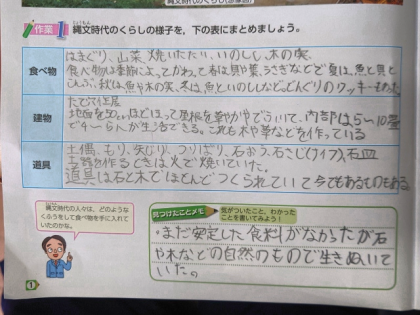 縄文時代のくらし(想像図)
作業1 縄文時代のくらしの様子を，下の表にまとめましょう。
食べ物
はまぐり、山菜、焼いたたい、いのしし、木の実
食べ物は季節によってかわって春は貝や葉、うさぎなどで夏は、魚と貝と
こんぶ、秋は、魚や木の実、冬は魚といのししなどどんぐりのクッキーもあった
建物
たて穴住居
地面を50cmほどほって屋根を草やかやでふいて、内部は5〜10畳
で4〜5人が生活できる。これも木や草などを作っている
道具
土偶、もり、矢じり、つりばり、石おの、石さじ(ナイフ)、石皿
土器を作るときは火で焼いていた。
道具は石と木でほとんどつくられていて今でもあるものもある
縄文時代の人々は，どのような
くふうをして食べ物を手に入れて
いたのかな。
見つけたことメモ
気がついたこと，わかった
ことを書いてみよう!
・まだ安定した食料がなかったが石
や木などの自然のもので生きぬいて
いた。
1